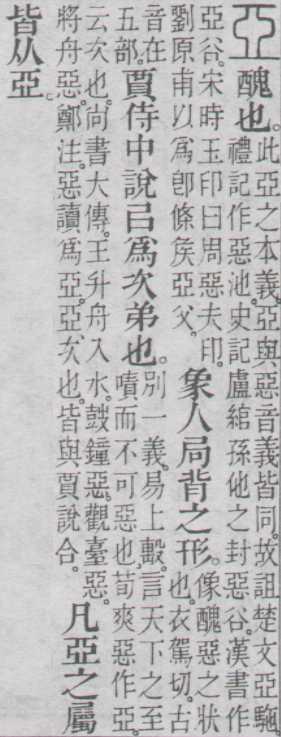 亞醜也。此亞之本義。亞與惡音義皆同。故詛楚文亞駞。禮記作惡池。史記盧綰孫他之封惡谷。漢書作
亞谷。宋時玉印曰周惡夫印。劉原甫以爲卽條矦亞父。象人局背之形。像醜惡之狀也。衣駕切。古
音在五部。賈侍中說㠯爲次弟也。別一義。易上毄。言天下之至嘖而不可惡也。荀爽惡作亞。
云次也。尚書大傳。王升舟入水。鼓鐘惡。觀臺惡。將舟惡。鄭注。惡讀爲亞。亞次也。皆與賈說合。凡亞之屬
皆从亞。